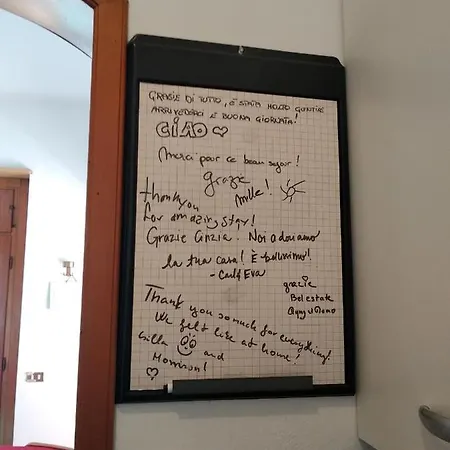 GRAZIE DI TUTTO, È STATA MOLTO GENTILE
ARRIVEDERCI E BUONA GIORNATA!
CIAO
Merci pour ce beau sejour!
Grazie
mille!
thank you
for amazing stay!
Grazie Cinzia. Noi adoriamo
la tua casa! È bellissimo!
- Carl & Eva
grazie
Bel estate
Thank you so much for everything!
We felt like at home!
and
Morrison!